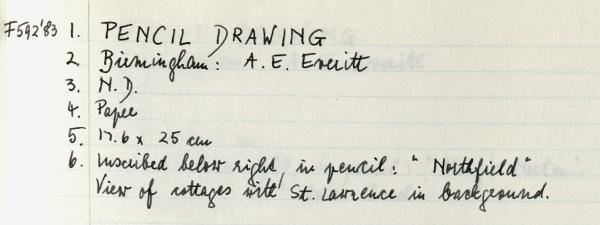 F592'83 1. PENCIL DRAWING
2 Birmingham: A. E. Everitt
3. N.D.
4. Paper
5. 17.6 x 25 cm
6. Inscribed below right, in pencil: "Northfield"
View of cottages with St. Lawrence in background.